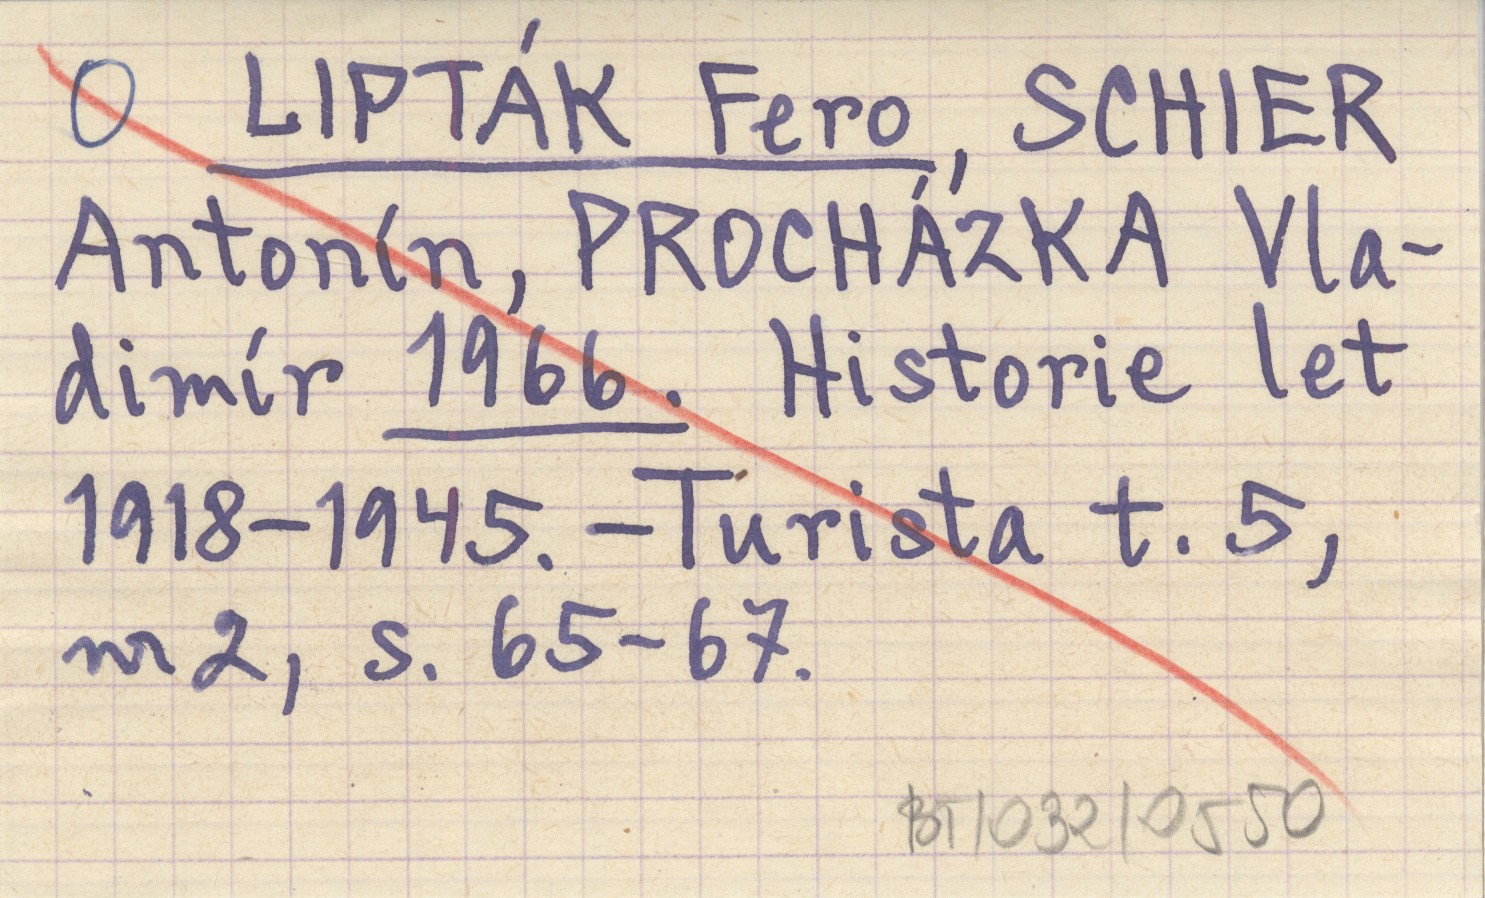 O LIPTÁK Fero, SCHIER
Antonín, PROCHÁZKA Vla-
dimír 1966. Historie let
1918-1945. - Turista t. 5,
nr 2, s. 65-67.
BT/032/0550